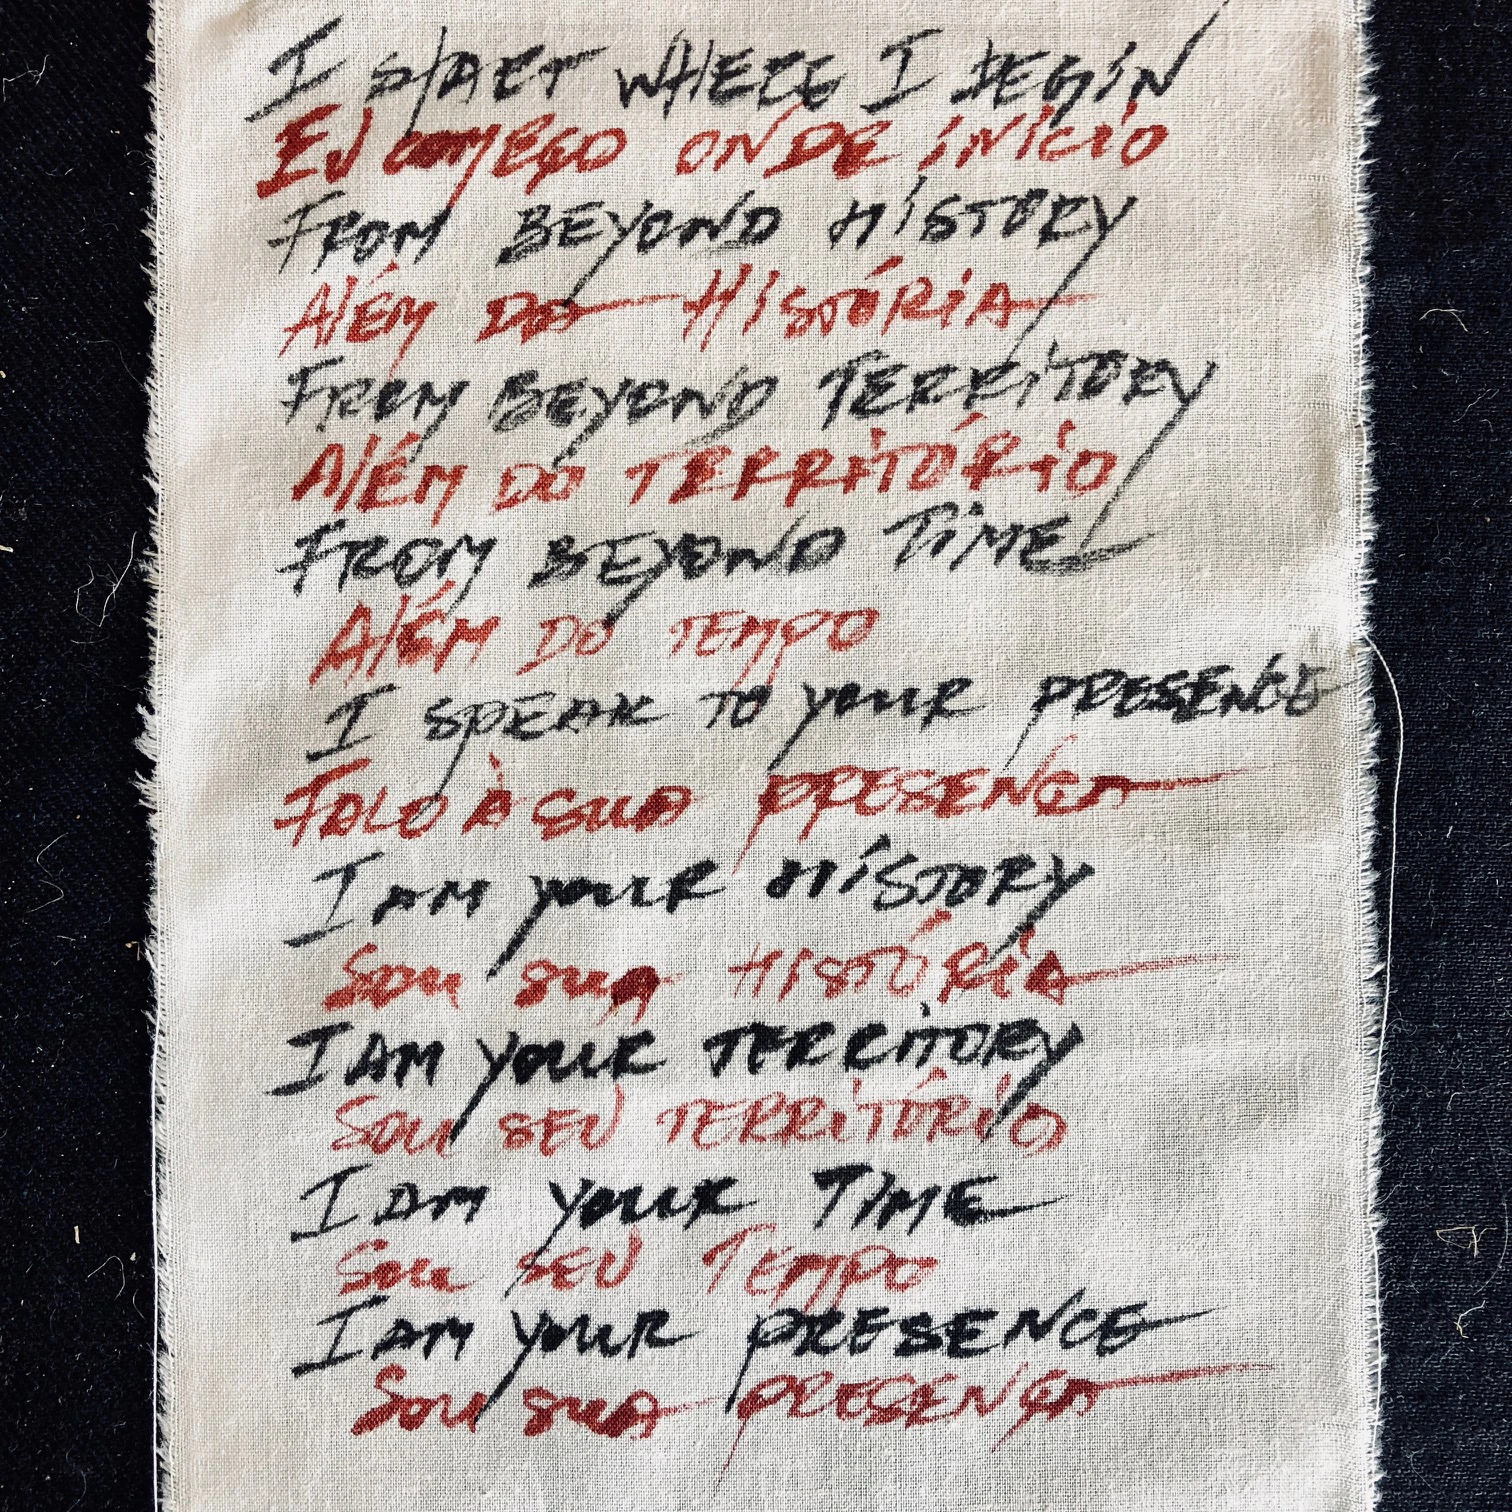 I START WHERE I BEGIN
EU COMEÇO ONDE INÍCIO
FROM BEYOND HISTORY
AlÉM DA HISTÓRIA
FROM BEYOND TERRITORY
AlÉM DO TERRITÓRIO
FROM BEYOND TIME
AlÉM DO TEMPO
I SPEAK TO YOUR PRESENCE
FALO À SUA PRESENÇA
I AM YOUR HISTORY
SOU SUA HISTÓRIA
I AM YOUR TERRITORY
SOU SEU TERRITÓRIO
I AM YOUR TIME
SOU SEU TEMPO
I AM YOUR PRESENCE
SOU SUA PRESENÇA